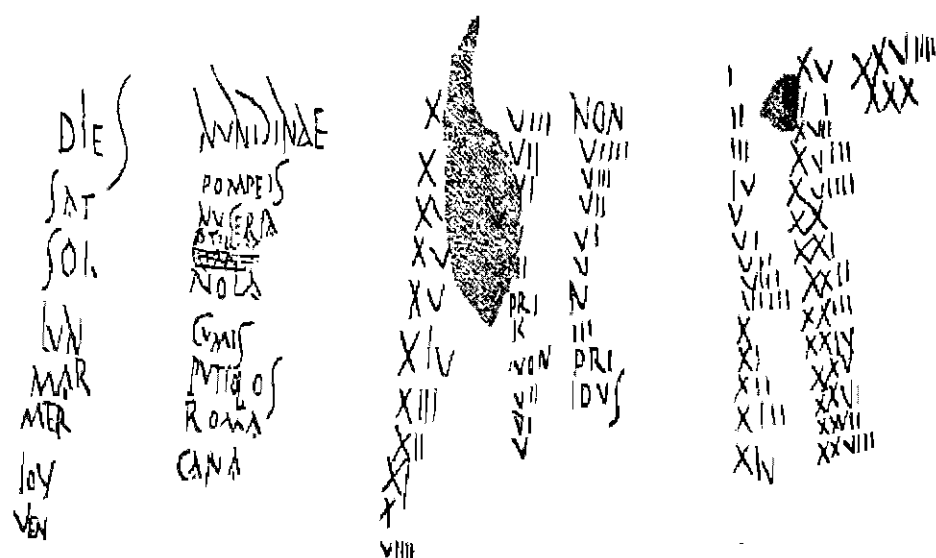 DIES
SAT
SOL
LVN
MAR
MER
IOV
VEN
NVNDINAE
POMPEIS
NVCERIA
NOLA
CVMIS
PVTIOLOS
ROMA
CANA
X
X
XV
XV
XV
XIV
XIII
XII
XI
X
VIIII
VIII
VII
VI
II
PRI
K
NON
VII
VI
V
NON
VIIII
VIII
VII
VI
V
N
III
PRI
IDVS
I
II
III
IV
V
VI
VII
VIII
VIIII
X
XI
XII
XIII
XIV
XV
XVII
XVIII
XVIIII
XX
XXI
XXII
XXIII
XXIV
XXV
XXVI
XXVII
XXVIII
XXVIIII
XXX